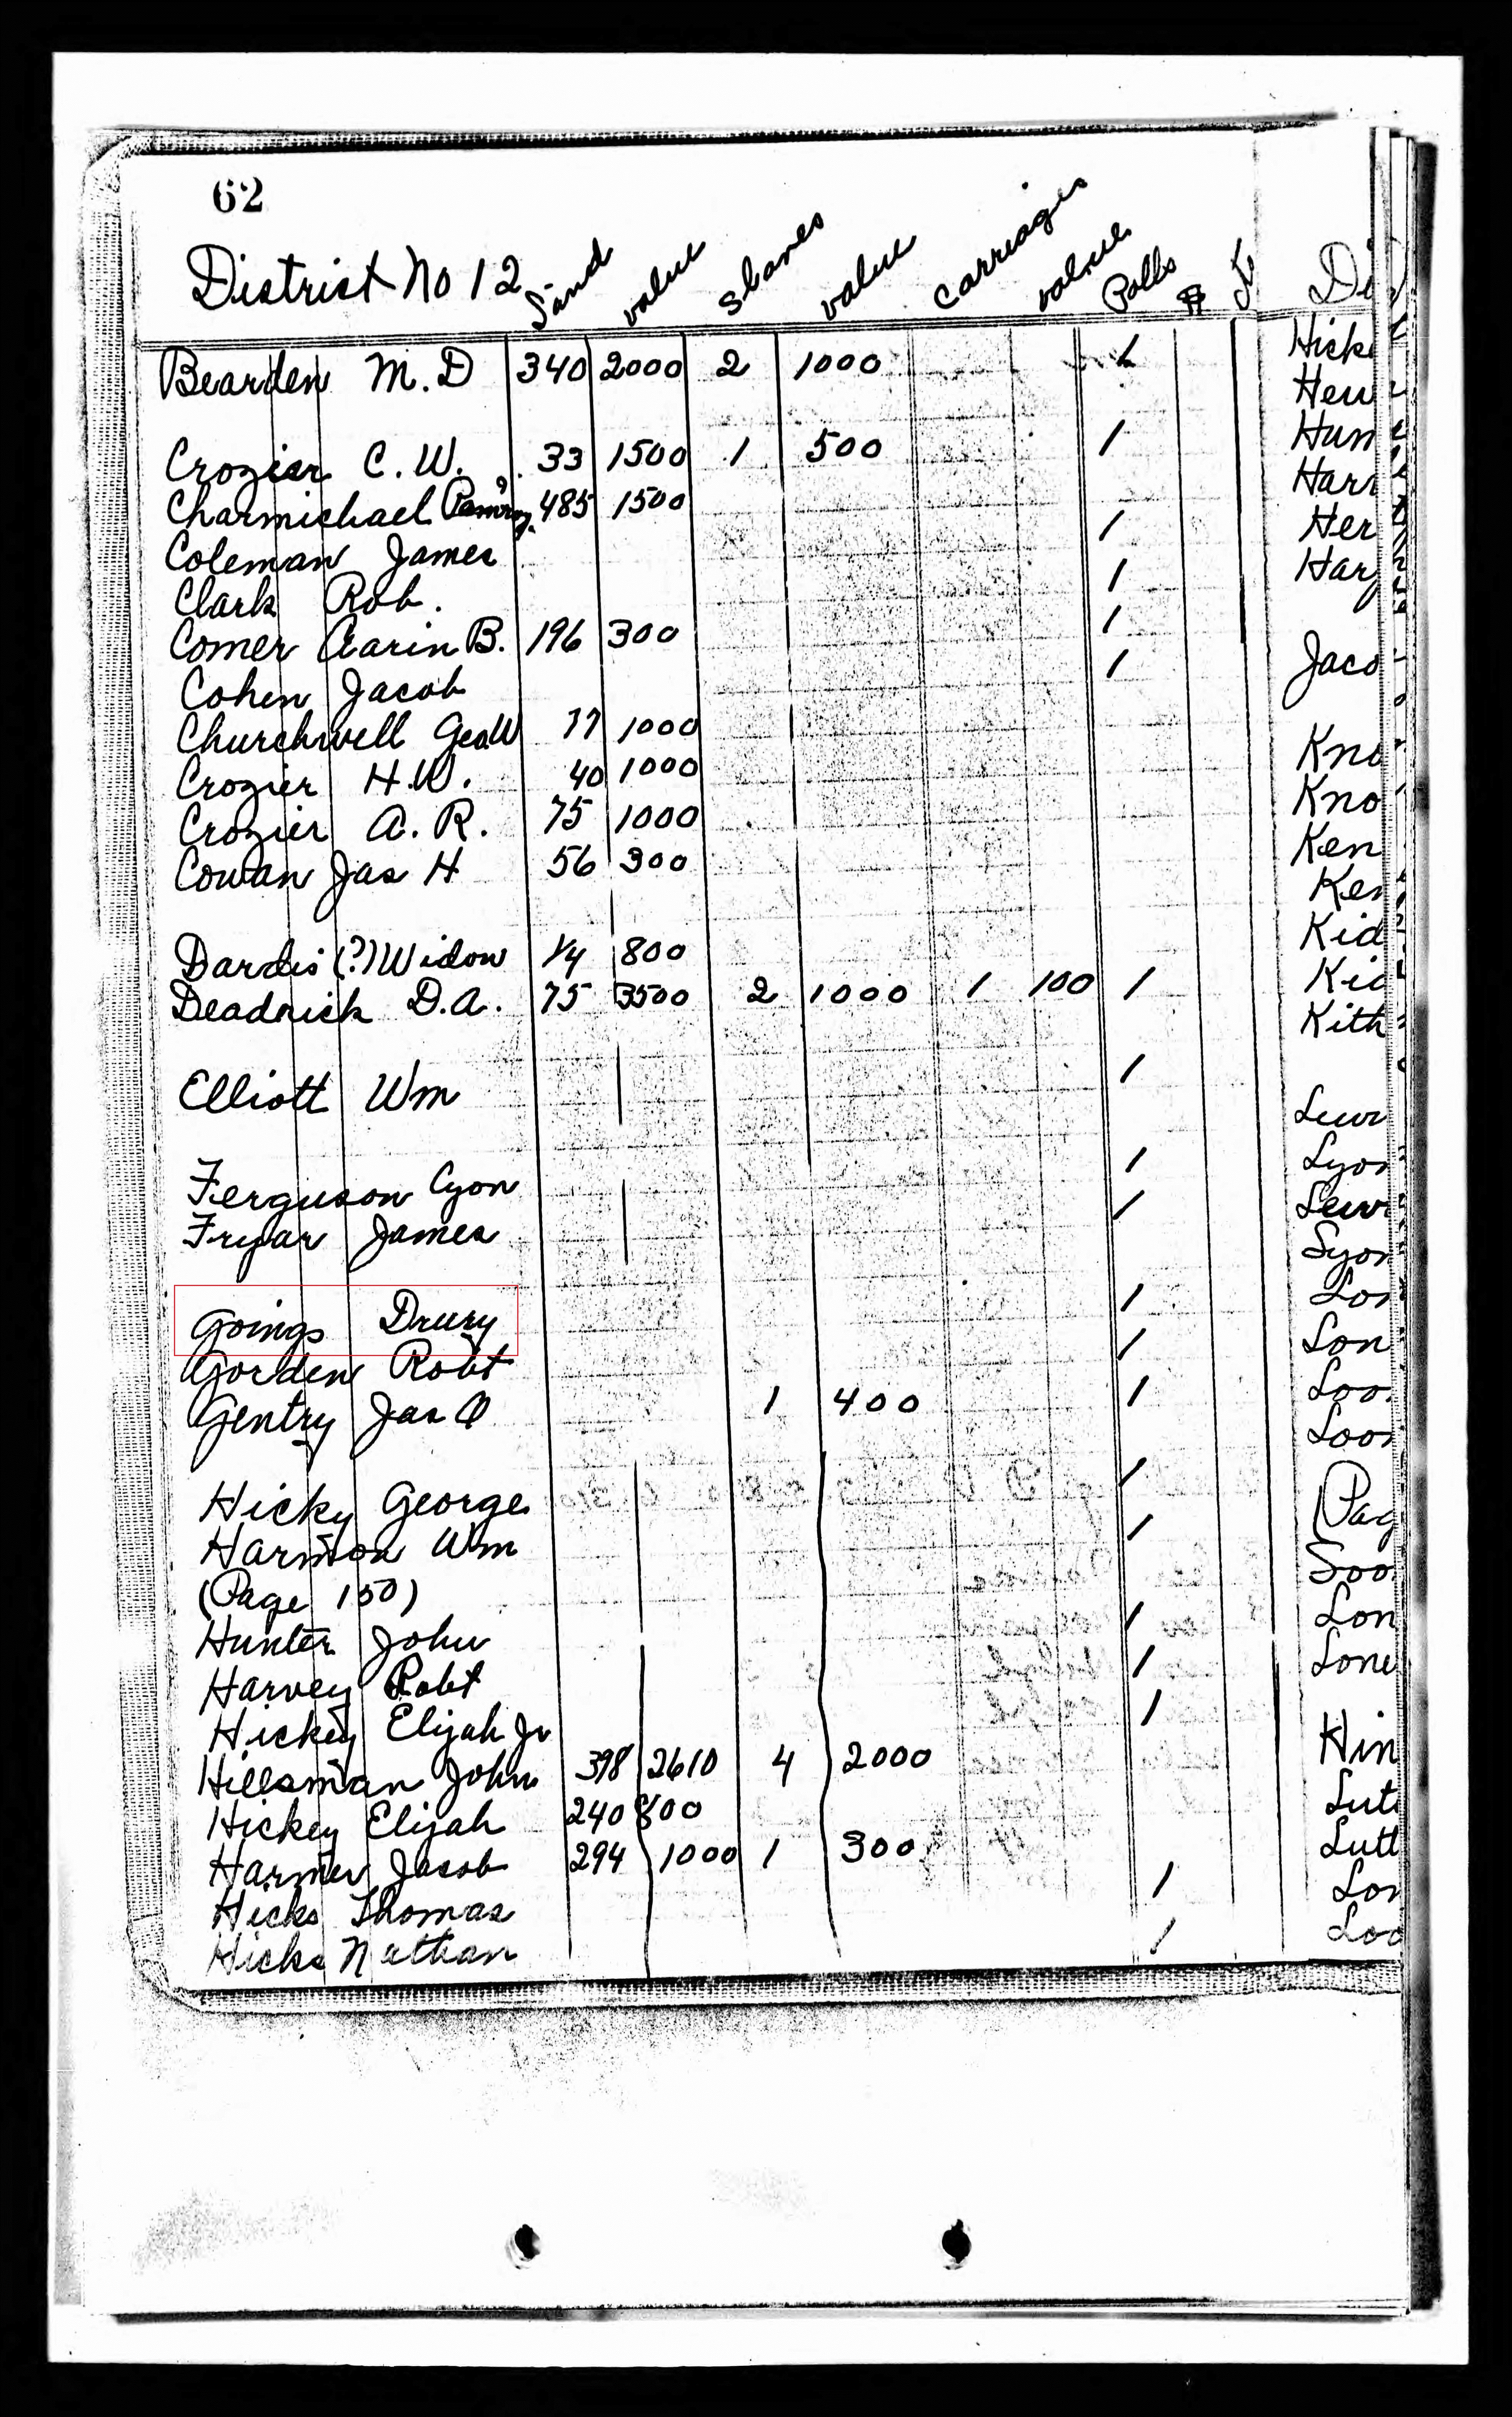 62
District No 12 Land value Slaves value Carriages value Polls
Bearden M. D 340 2000 2 1000 1
Crozier C. W. 33 1500 1 500 1
Charmichael 485 1500
Coleman James 1
Clark Rob. 1
Comer Aarin B. 196 300 1
Cohen Jacob 1
Churchwell Geo W 77 1000
Crozier H. W. 40 1000
Crozier A. R. 75 1000
Cowan Jas H 56 300
Dardis (?) Widow 1/4 800
Deadrick D. A. 75 3500 2 1000 1 100 1
Elliott Wm 1
Ferguson Cyon 1
Fryar James 1
Goings Drury 1
Gorden Robt 1
Gentry Jas O 1 400 1
Hicky George 1
Harmon Wm 1
(Page 150)
Hunter John 1
Harvey Robt 1
Hickey Elijah Jr 1
Hillsman John 398 2610 4 2000
Hickey Elijah 240 800
Harmer Jacob 294 1000 1 300
Hicks Thomas 1
Hicks Nathan 1
Di
Hick
Hew
Hun
Harr
Her
Har
Jaco
Kno
Kno
Ken
Ken
Kid
Kid
Kith
Lewi
Lyon
Lewi
Lyon
Lon
Lon
Loo
Loo
(Pag
Loo
Lon
Lone
Hin
Lutt
Lutt
Lon
Loo